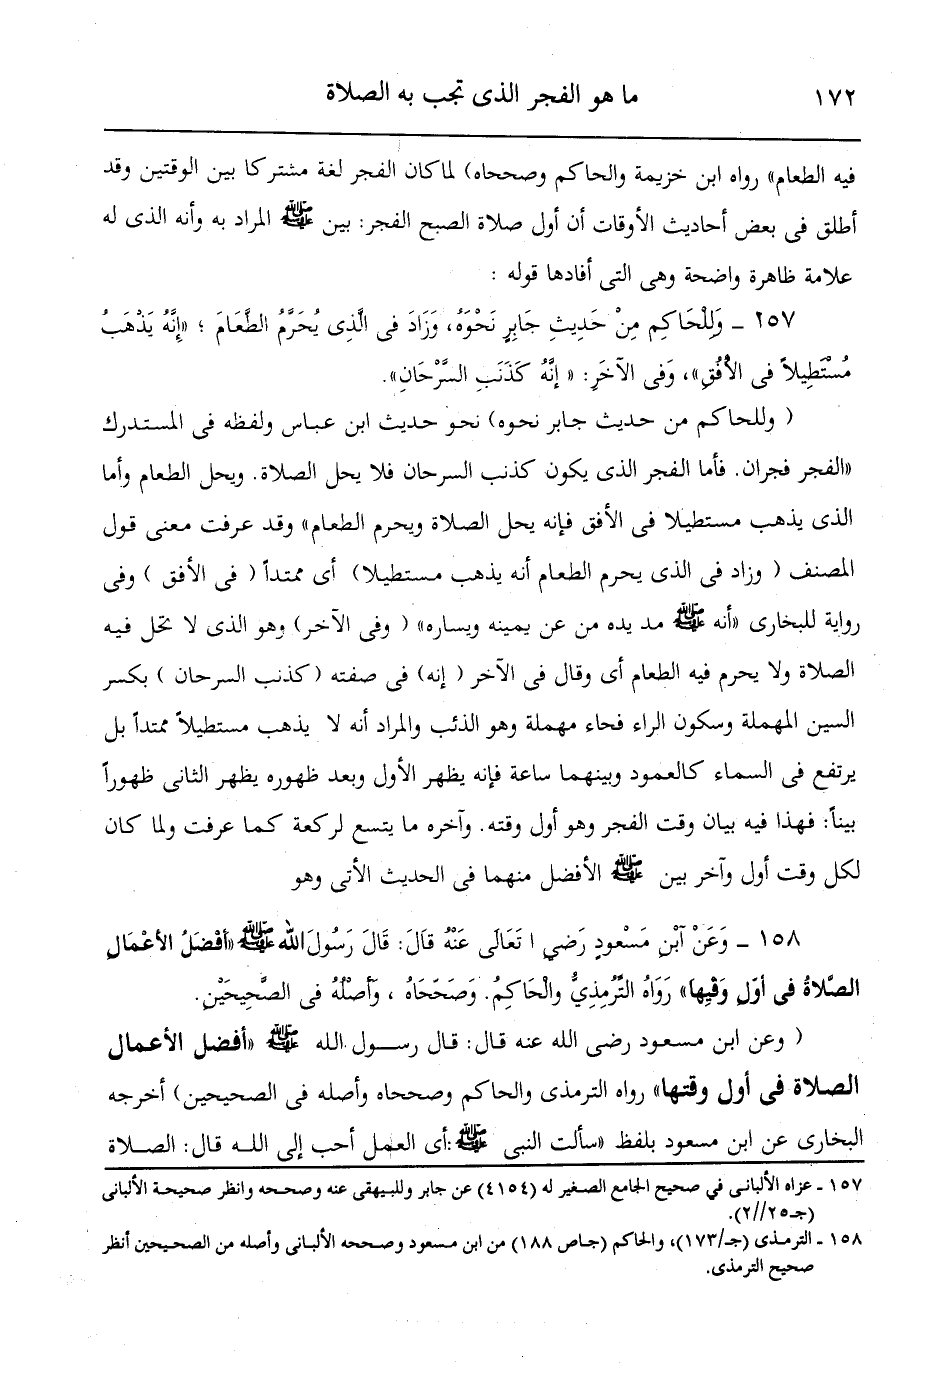 ١٧٢ ما هو الفجر الذى تجب به الصلاة
فيه الطعام» رواه ابن خزيمة والحاكم وصححاه) لما كان الفجر لغة مشتركا بين الوقتين وقد
أطلق فى بعض أحاديث الأوقات أن أول صلاة الصبح الفجر: بين ﷺ المراد به وأنه الذى له
علامة ظاهرة واضحة وهى التى أفادها قوله :
٢٥٧ ـ وَلِلْحَاكِمِ مِنْ حَدِيثِ جَابِرٍ نَحْوَهُ، وَزَادَ فى الَّذِى يُحَرَّمُ الطَّعَامَ ؛ «إِنَّهُ يَذْهَبُ
مُسْتَطِيلاً فى الأُفُقِ»، وَفى الآخَرِ: « إِنَّهُ كَذَنَبِ السَّرْحَانِ».
( وللحاكم من حديث جابر نحوه) نحو حديث ابن عباس ولفظه فى المستدرك
«الفجر فجران. فأما الفجر الذى يكون كذنب السرحان فلا يحل الصلاة. ويحل الطعام وأما
الذى يذهب مستطيلا فى الأفق فإنه يحل الصلاة ويحرم الطعام» وقد عرفت معنى قول
المصنف ( وزاد فى الذى يحرم الطعام أنه يذهب مستطيلا) أى ممتداً ( فى الأفق ) وفى
رواية للبخارى «أنه ﷺ مد يده من عن يمينه ويساره» ( وفى الآخر) وهو الذى لا تحل فيه
الصلاة ولا يحرم فيه الطعام أى وقال فى الآخر ( إنه) فى صفته (كذنب السرحان ) بكسر
السين المهملة وسكون الراء فحاء مهملة وهو الذئب والمراد أنه لا يذهب مستطيلاً ممتداً بل
يرتفع فى السماء كالعمود وبينهما ساعة فإنه يظهر الأول وبعد ظهوره يظهر الثانى ظهوراً
بيناً: فهذا فيه بيان وقت الفجر وهو أول وقته. وآخره ما يتسع لركعة كما عرفت ولما كان
لكل وقت أول وآخر بين ﷺ الأفضل منهما فى الحديث الأتى وهو
١٥٨ ـ وَعَنْ آبْنِ مَسْعودٍ رَضي ا تَعَالَى عَنْهُ قَالَ: قَالَ رَسُولَ الله ﷺ «أَفْضَلُ الأَعْمَالِ
الصَّلاةُ فى أوّلِ وَقْتِها» رَوَاهُ التِّرْمِذِيُّ والْحَاكِمُ. وَصَحَحَاهُ ، وَأَصْلُهُ فى الصَّحِيحَيْنِ.
( وعن ابن مسعود رضى الله عنه قال: قال رسول الله ﷺ «أفضل الأعمال
الصلاة فى أول وقتها» رواه الترمذى والحاكم وصححاه وأصله فى الصحيحين) أخرجه
البخارى عن ابن مسعود بلفظ «سألت النبى ﷺ :أى العمل أحب إلى الله قال: الصلاة
١٥٧ ـ عزاه الألبانى في صحيح الجامع الصغير له (٤١٥٤) عن جابر وللبيهقى عنه وصححه وانظر صحيحة الألبانى
(جـ٢٥//٢).
١٥٨ ـ الترمذى (جـ/١٧٣)، والحاكم (جـاص ١٨٨) من ابن مسعود وصححه الألبانى وأصله من الصحيحين أنظر
صحيح الترمذى.